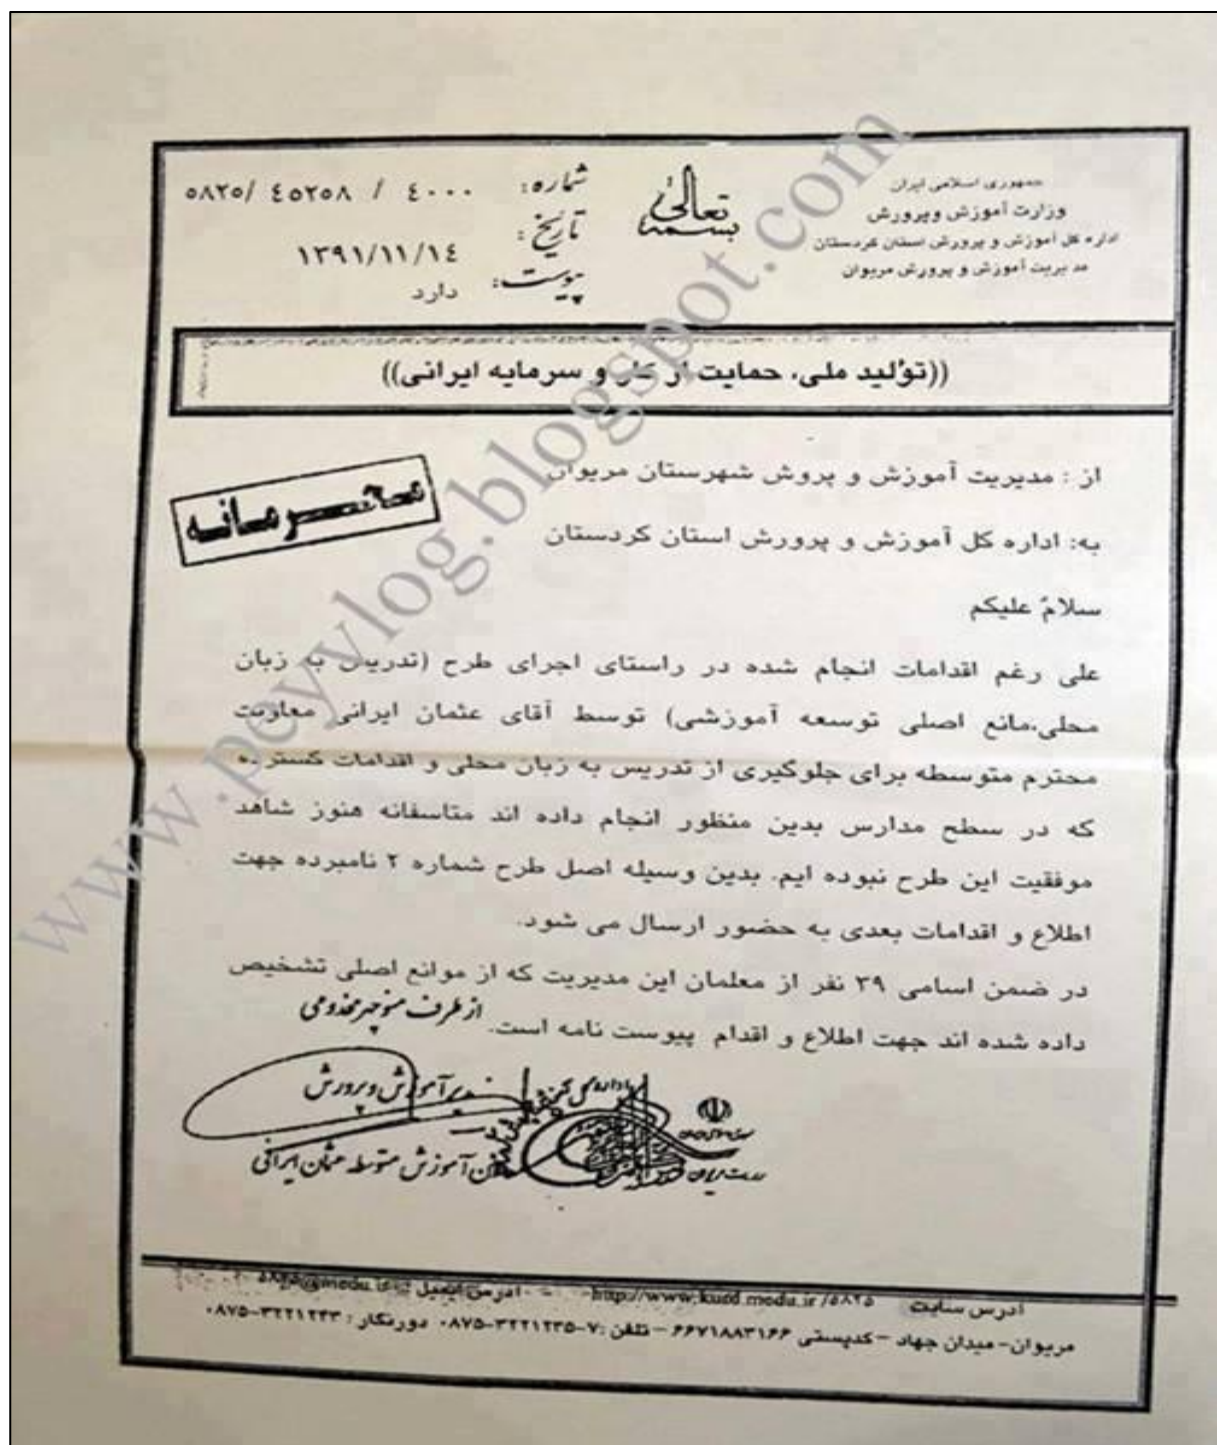 جمهوری اسلامی ایران
وزارت آموزش وپرورش
اداره کل آموزش و پرورش استان کردستان
مدیریت آموزش و پرورش مریوان
بسمه تعالی
شماره: ٤٠٠٠ / ٤٥٢٥٨ /٥٨٢٥
تاریخ: ١٣٩١/١١/١٤
پیوست: دارد
((تؤلید ملی، حمایت از کار و سرمایه ایرانی))
محرمانه
از : مدیریت آموزش و پروش شهرستان مریوان
به: اداره کل آموزش و پرورش استان کردستان
سلامٌ علیکم
علی رغم اقدامات انجام شده در راستای اجرای طرح (تدریس به زبان
محلی،مانع اصلی توسعه آموزشی) توسط آقای عثمان ایرانی معاونت
محترم متوسطه برای جلوگیری از تدریس به زبان محلی و اقدامات گسترده
که در سطح مدارس بدین منظور انجام داده اند متاسفانه هنوز شاهد
موفقیت این طرح نبوده ایم. بدین وسیله اصل طرح شماره ۲ نامبرده جهت
اطلاع و اقدامات بعدی به حضور ارسال می شود.
در ضمن اسامی ۳۹ نفر از معلمان این مدیریت که از موانع اصلی تشخیص
داده شده اند جهت اطلاع و اقدام پیوست نامه است.
از طرف منوچهر مخدومی
مدیر آموزش و پرورش
آموزش متوسطه عثمان ایرانی
آدرس سایت http://www.kurd.medu.ir/۵۸۲۵ - آدرس ایمیل
مریوان- میدان جهاد –کدپستی ۶۶۷۱۸۸۳۱۶۶ –تلفن :۷-۳۲۲۱۲۳۵-۰۸۷۵ دورنگار : ۳۲۲۱۲۳۳-۰۸۷۵
www.peyvlog.blogspot.com